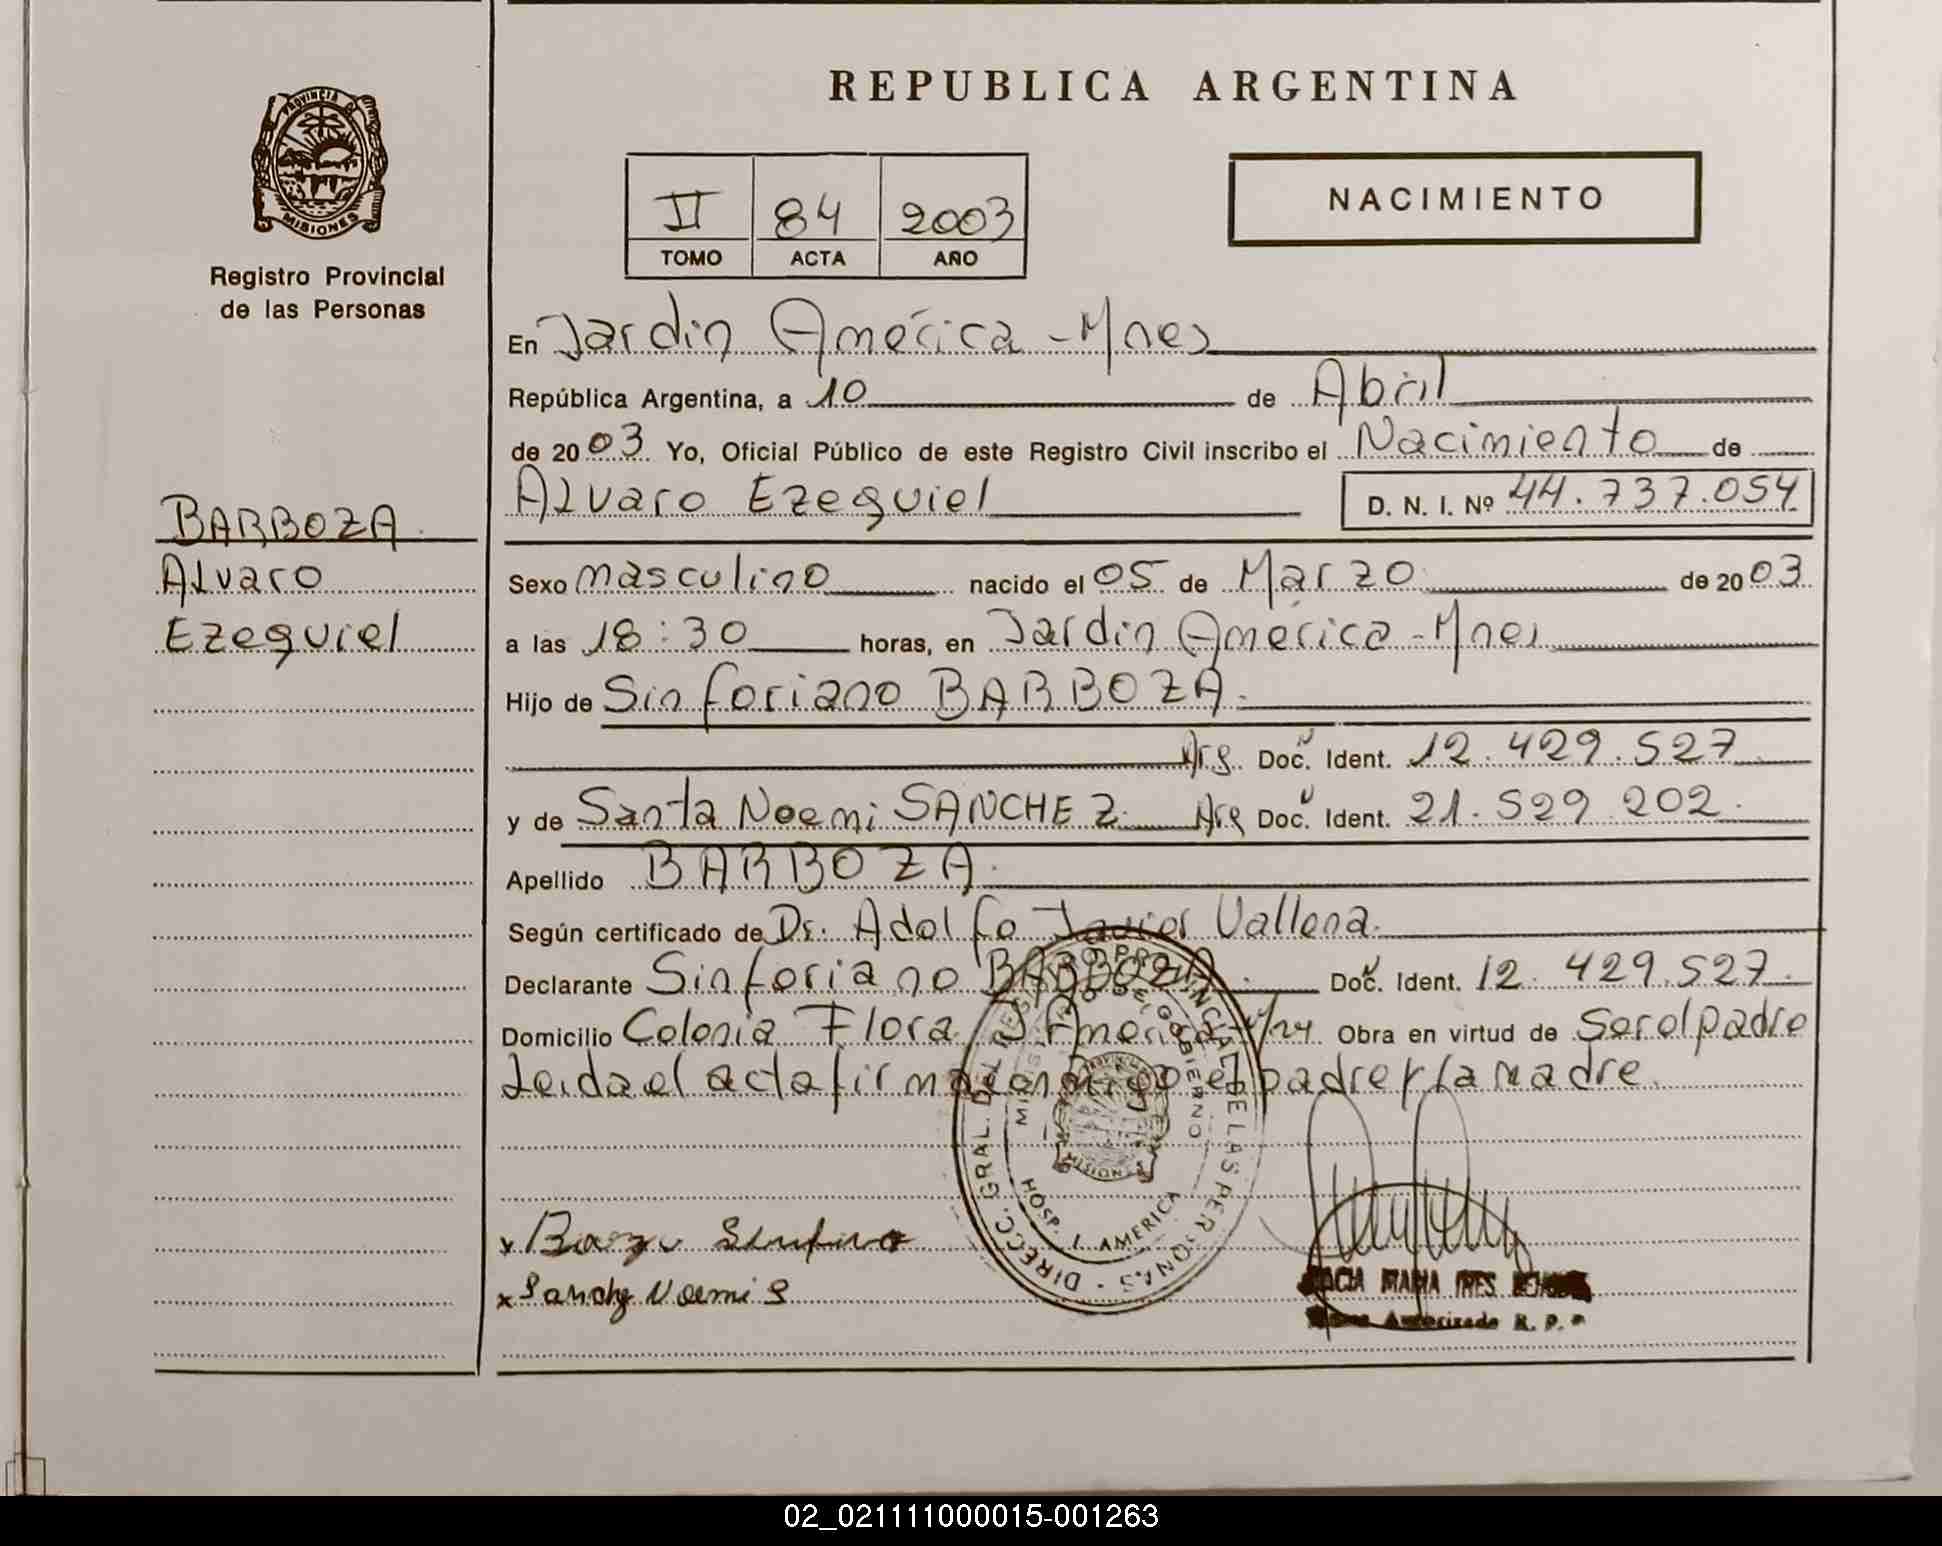 REPUBLICA ARGENTINA
PROVINCIA DE
MISIONES
Registro Provincial
de las Personas
II 84 2003
TOMO ACTA AÑO
NACIMIENTO
En Jardin América - Mnes
República Argentina, a 10 de Abril
de 2003 Yo, Oficial Público de este Registro Civil inscribo el Nacimiento de
Alvaro Ezequiel D. N. I. Nº 44.737.054
BARBOZA.
Alvaro
Ezequiel
Sexo masculino nacido el 05 de Marzo de 2003
a las 18:30 horas, en Jardin América - Mnes
Hijo de Sinforiano BARBOZA.
Arg. Doc. Ident. 12.429.527
y de Santa Noemi SANCHEZ. Arg Doc. Ident. 21.529.202.
Apellido BARBOZA.
Según certificado de Dr. Adolfo Javier Vallena.
Declarante Sinforiano BARBOZA. Doc. Ident. 12.429.527.
Domicilio Colonia Flora J. America Obra en virtud de Ser el padre
Leida el acta firman conmigo el padre y la madre.
DIRECC. GRAL. DEL REGISTRO PROVINCIAL DE LAS PERSONAS
DE GOBIERNO
HOSP. J. AMERICA
x
x Sanchez Noemi S
MARIA INES
Autorizado R. P.
02_021111000015-001263